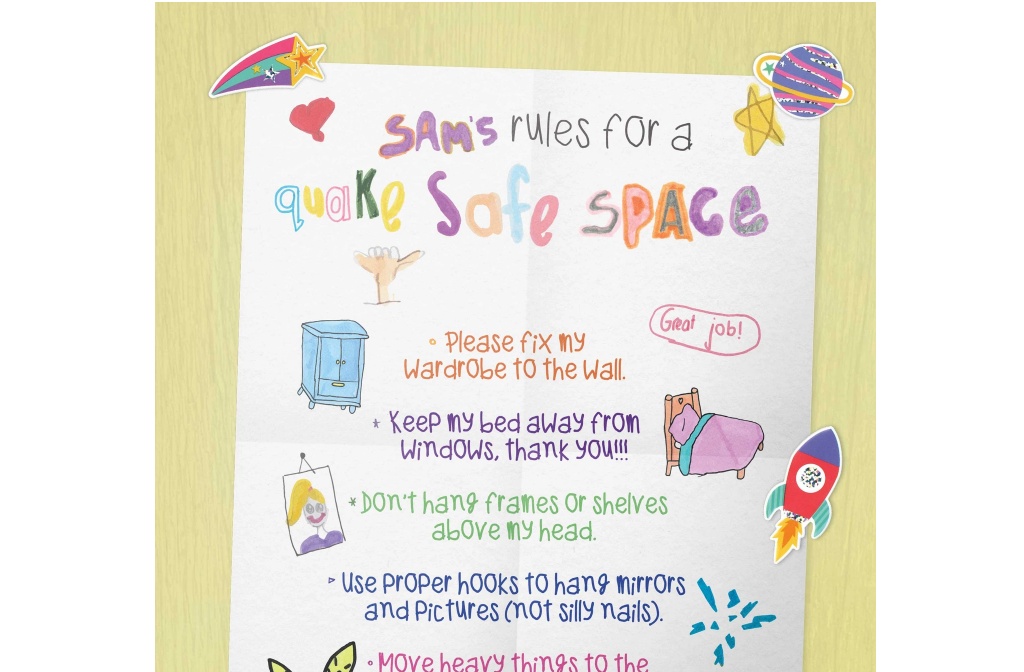 SAM'S rules for a
quake Safe space
Great job!
• Please fix my
wardrobe to the wall.
* Keep my bed away from
windows, thank you!!!
* Don't hang frames or shelves
above my head.
▹ Use proper hooks to hang mirrors
and pictures (not silly nails).
• Move heavy things to the